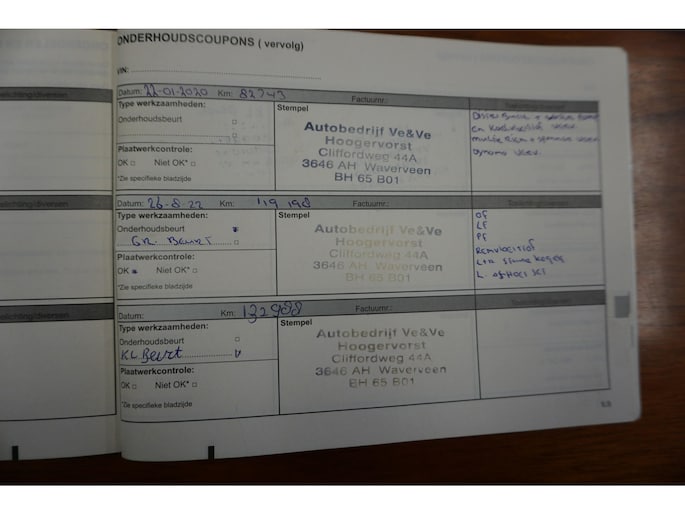 ONDERHOUDSCOUPONS ( vervolg)
VIN:
Datum: 22-01-2020 Km: 82743 Factuurnr.:
Type werkzaamheden:
Onderhoudsbeurt
Plaatwerkcontrole:
OK Niet OK*
*Zie specifieke bladzijde
Stempel
Autobedrijf Ve&Ve
Hoogervorst
Cliffordweg 44A
3646 AH Waverveen
BH 65 B01
Dynamo
Datum: 26-8-22 Km: 119 198 Factuurnr.:
Type werkzaamheden:
Onderhoudsbeurt
GR. Beurt
Plaatwerkcontrole:
OK Niet OK*
*Zie specifieke bladzijde
Stempel
Autobedrijf Ve&Ve
Hoogervorst
Cliffordweg 44A
3646 AH Waverveen
BH 65 B01
OF
LF
PF
Remvloeistof
Datum: Km: 132988 Factuurnr.:
Type werkzaamheden:
Onderhoudsbeurt
KL Beurt
Plaatwerkcontrole:
OK Niet OK*
*Zie specifieke bladzijde
Stempel
Autobedrijf Ve&Ve
Hoogervorst
Cliffordweg 44A
3646 AH Waverveen
BH 65 B01